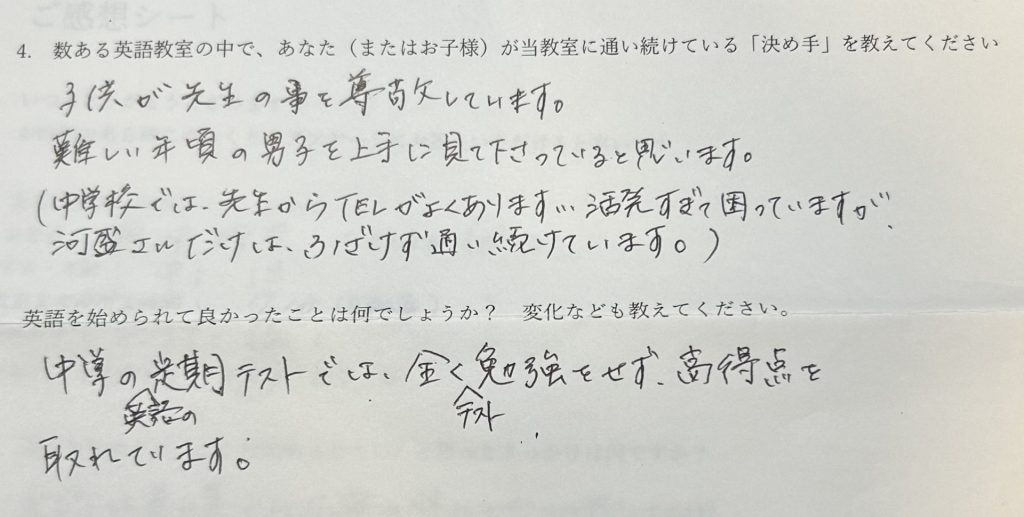 4. 数ある英語教室の中で、あなた（またはお子様）が当教室に通い続けている「決め手」を教えてください
子供が先生の事を尊敬しています。
難しい年頃の男子を上手に見て下さっていると思います。
(中学校では、先生からTELがよくあります… 活発すぎて困っていますが、
だけは、ふざけず通い続けています。)
英語を始められて良かったことは何でしょうか？ 変化なども教えてください。
中学の英語の定期テストでは、全くテスト勉強をせず、高得点を
取れています。